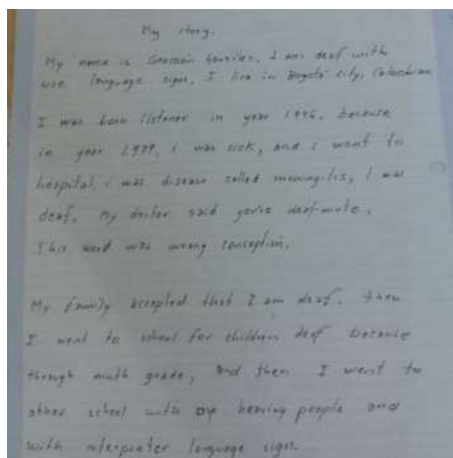 My story.
My name is Germán González, I am deaf with
use language sign, I live in Bogotá city, Colombian
I was born listener in year 1996, because
in year 1999, i was sick, and i went to
hospital, i was disease called meningitis, I was
deaf. My doctor said you're deaf-mute,
This word was wrong conception.
My family accepted that I am deaf. then
I went to school for children deaf because
through ninth grade, and then I went to
other school with hearing people and
with interpreter language sign.